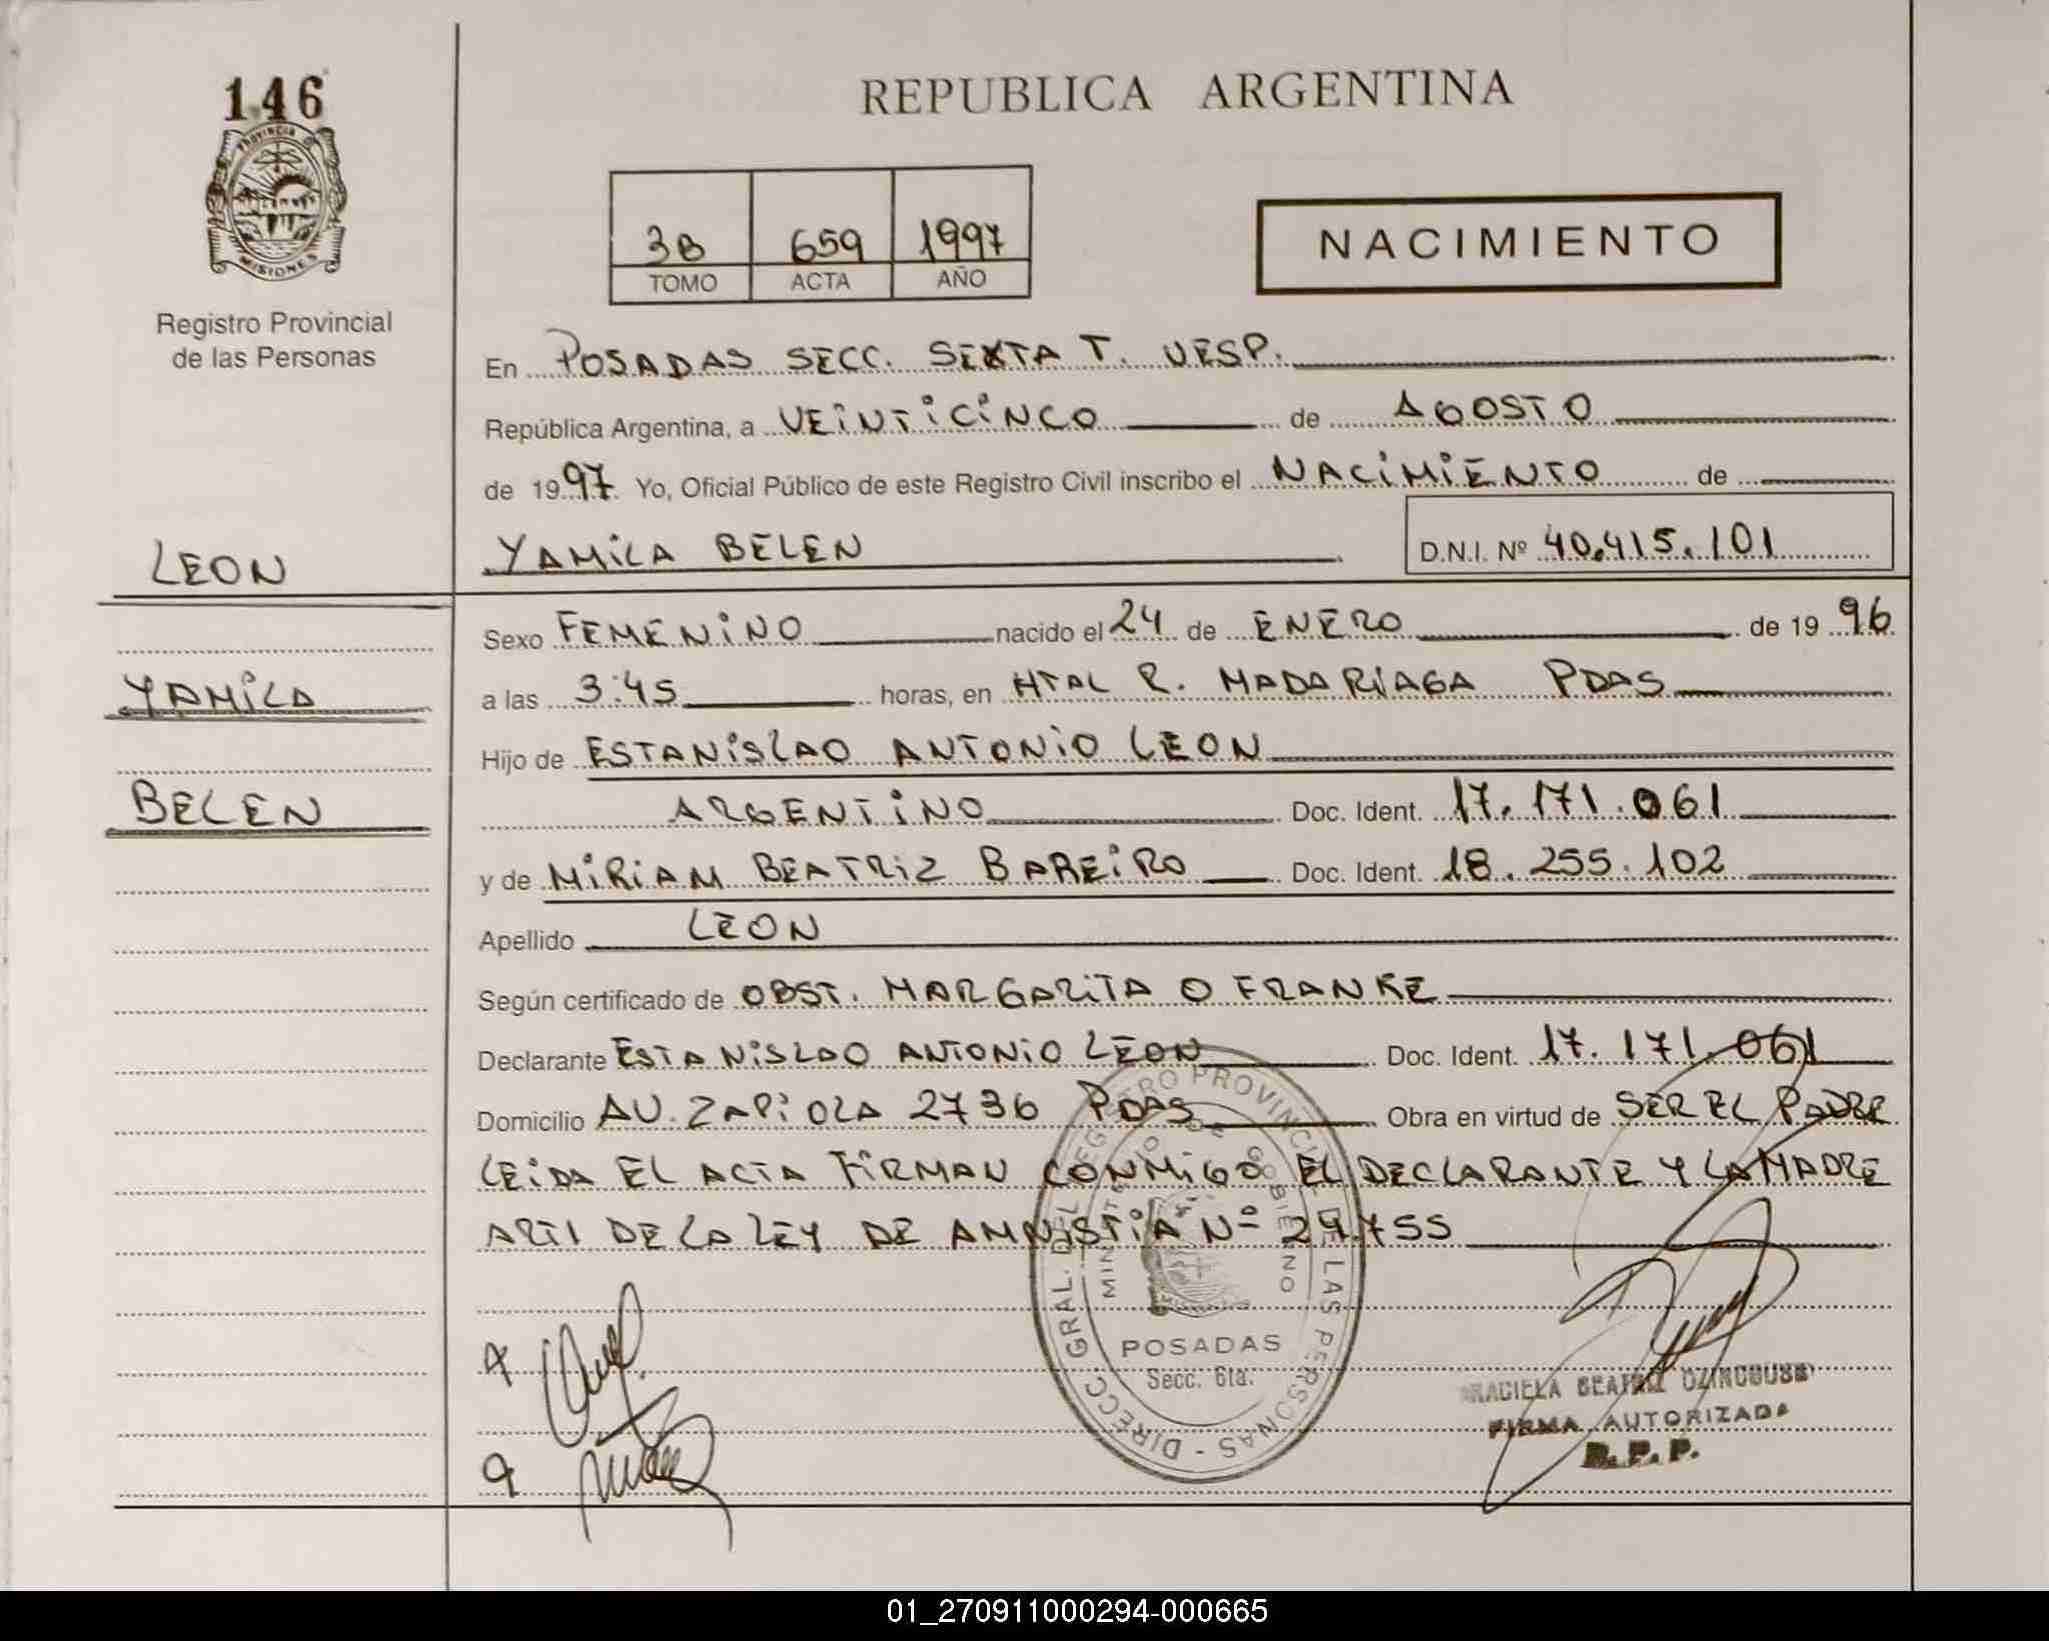 146
PROVINCIA DE
MISIONES
Registro Provincial
de las Personas
LEON
YAMILA
BELEN
REPUBLICA ARGENTINA
3B 659 1997
TOMO ACTA AÑO
NACIMIENTO
En POSADAS SECC. SEXTA T. VESP.
República Argentina, a VEINTICINCO de AGOSTO
de 1997 Yo, Oficial Público de este Registro Civil inscribo el NACIMIENTO de
YAMILA BELEN D.N.I. Nº 40.415.101
Sexo FEMENINO nacido el 24 de ENERO de 1996
a las 3:45 horas, en HTAL R. MADARIAGA PDAS
Hijo de ESTANISLAO ANTONIO LEON
ARGENTINO Doc. Ident. 17.171.061
y de MIRIAM BEATRIZ BAREIRO Doc. Ident. 18.255.102
Apellido LEON
Según certificado de OBST. MARGARITA O FRANKE
Declarante ESTANISLAO ANTONIO LEON Doc. Ident. 17.171.061
Domicilio AU. ZAPIOLA 2736 PDAS Obra en virtud de SER EL PADRE
LEIDA EL ACTA FIRMAN CONMIGO EL DECLARANTE Y LA MADRE
ART1 DE LA LEY DE AMNISTIA Nº 24.755
DIRECC. GRAL. DEL REGISTRO PROVINCIAL DE LAS PERSONAS -
MINISTERIO DE GOBIERNO
POSADAS
Secc. 6ta.
GRACIELA BEATRIZ
FIRMA AUTORIZADA
R.P.P.
01_270911000294-000665